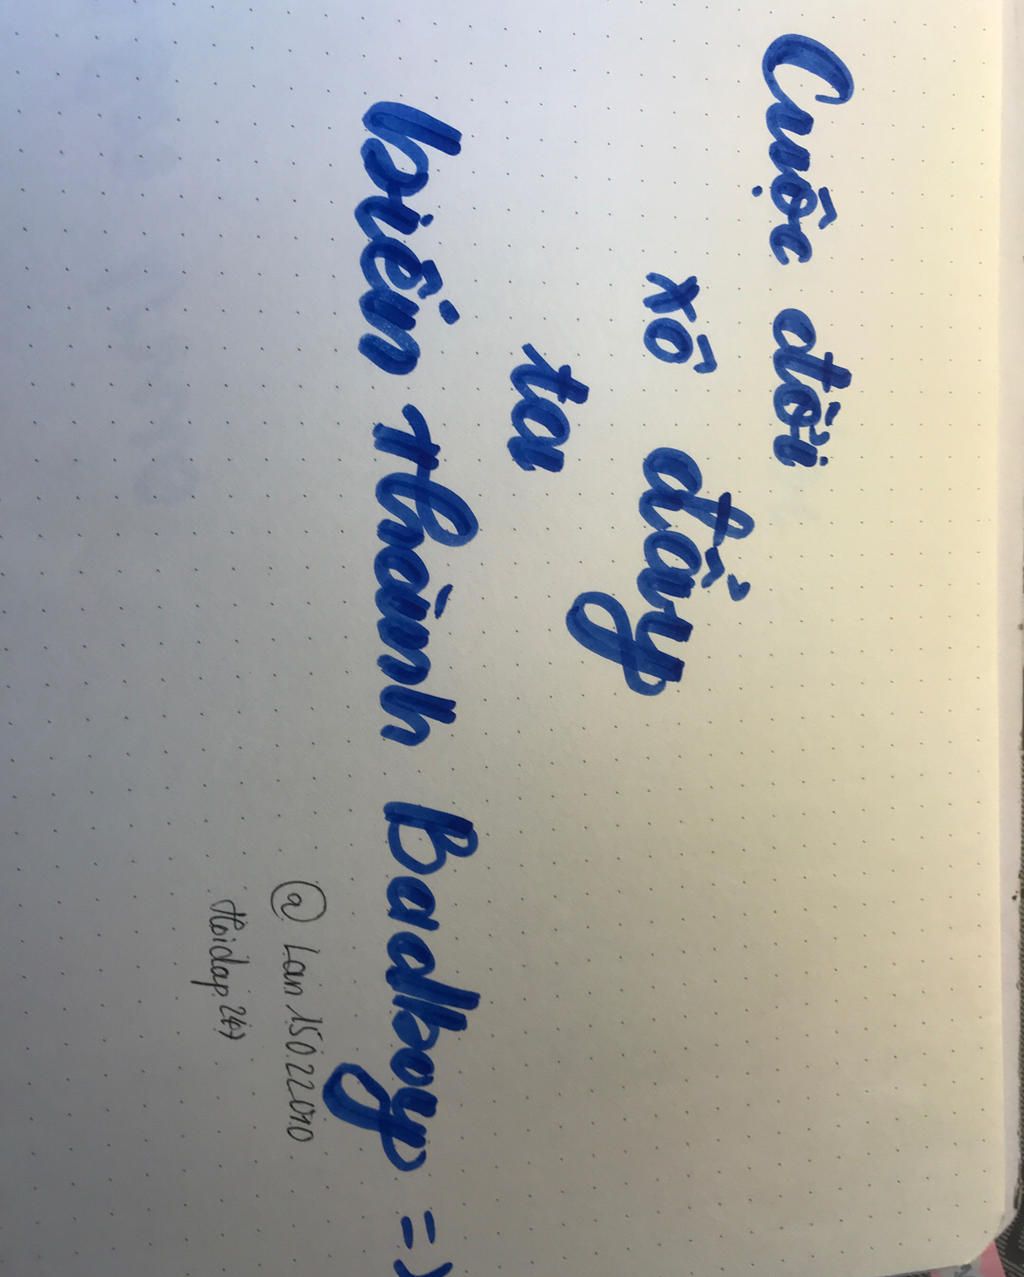 Cuộc đời
xô đẩy
ta
biến thành Badboy =>
@ Lan 15022010
Hoidap 247